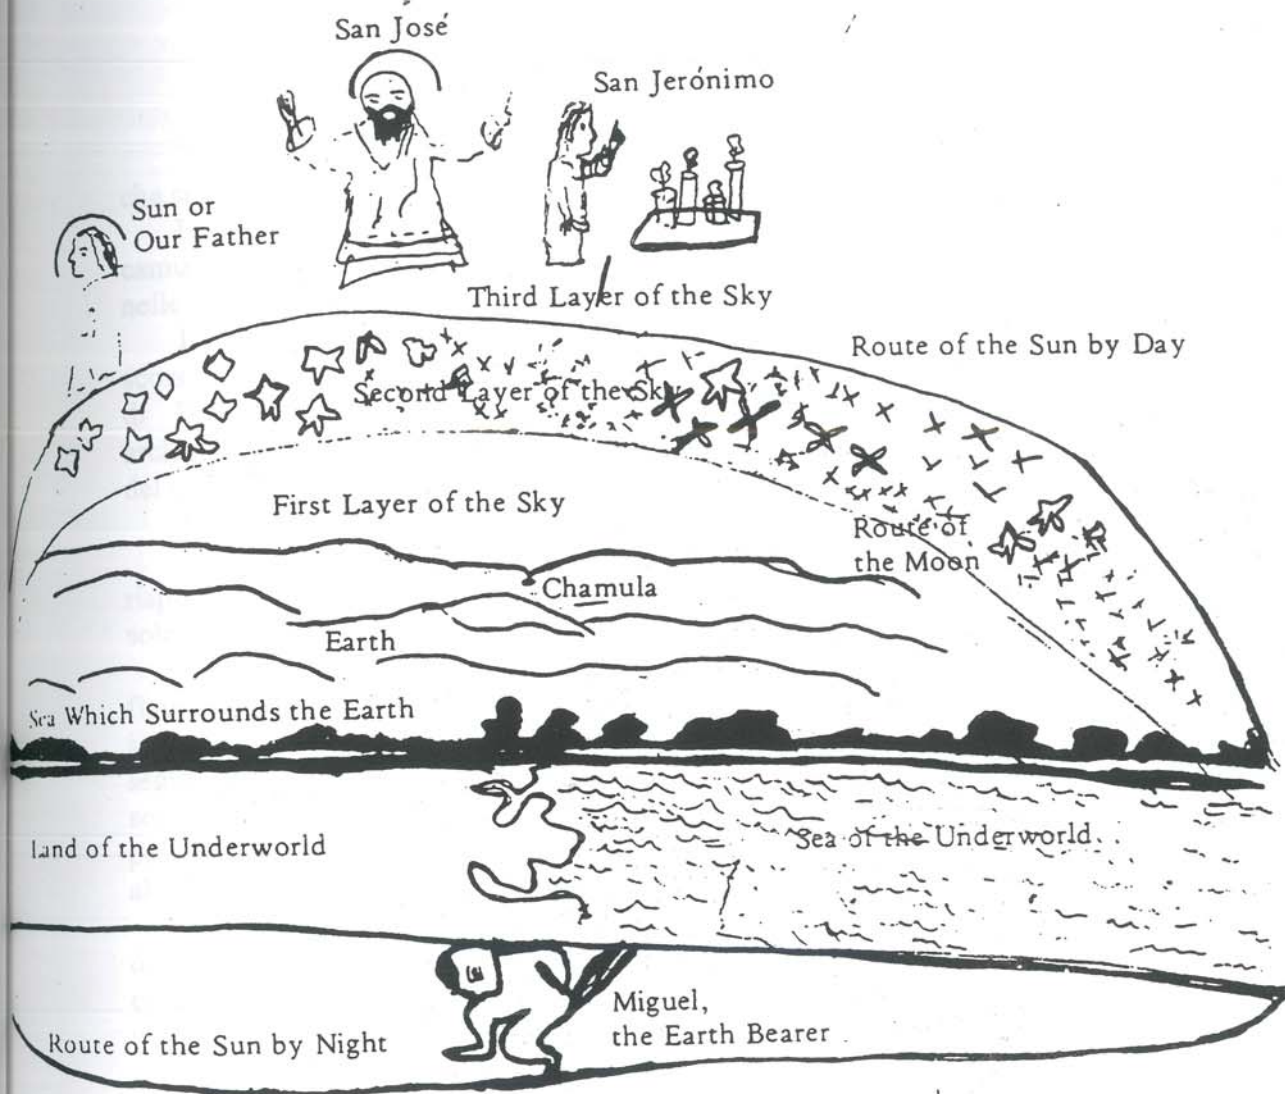 San José
San Jerónimo
Sun or
Our Father
Third Layer of the Sky
Route of the Sun by Day
Second Layer of the Sky
First Layer of the Sky
Route of
the Moon
Chamula
Earth
Sea Which Surrounds the Earth
Land of the Underworld
Sea of the Underworld
Miguel,
the Earth Bearer
Route of the Sun by Night